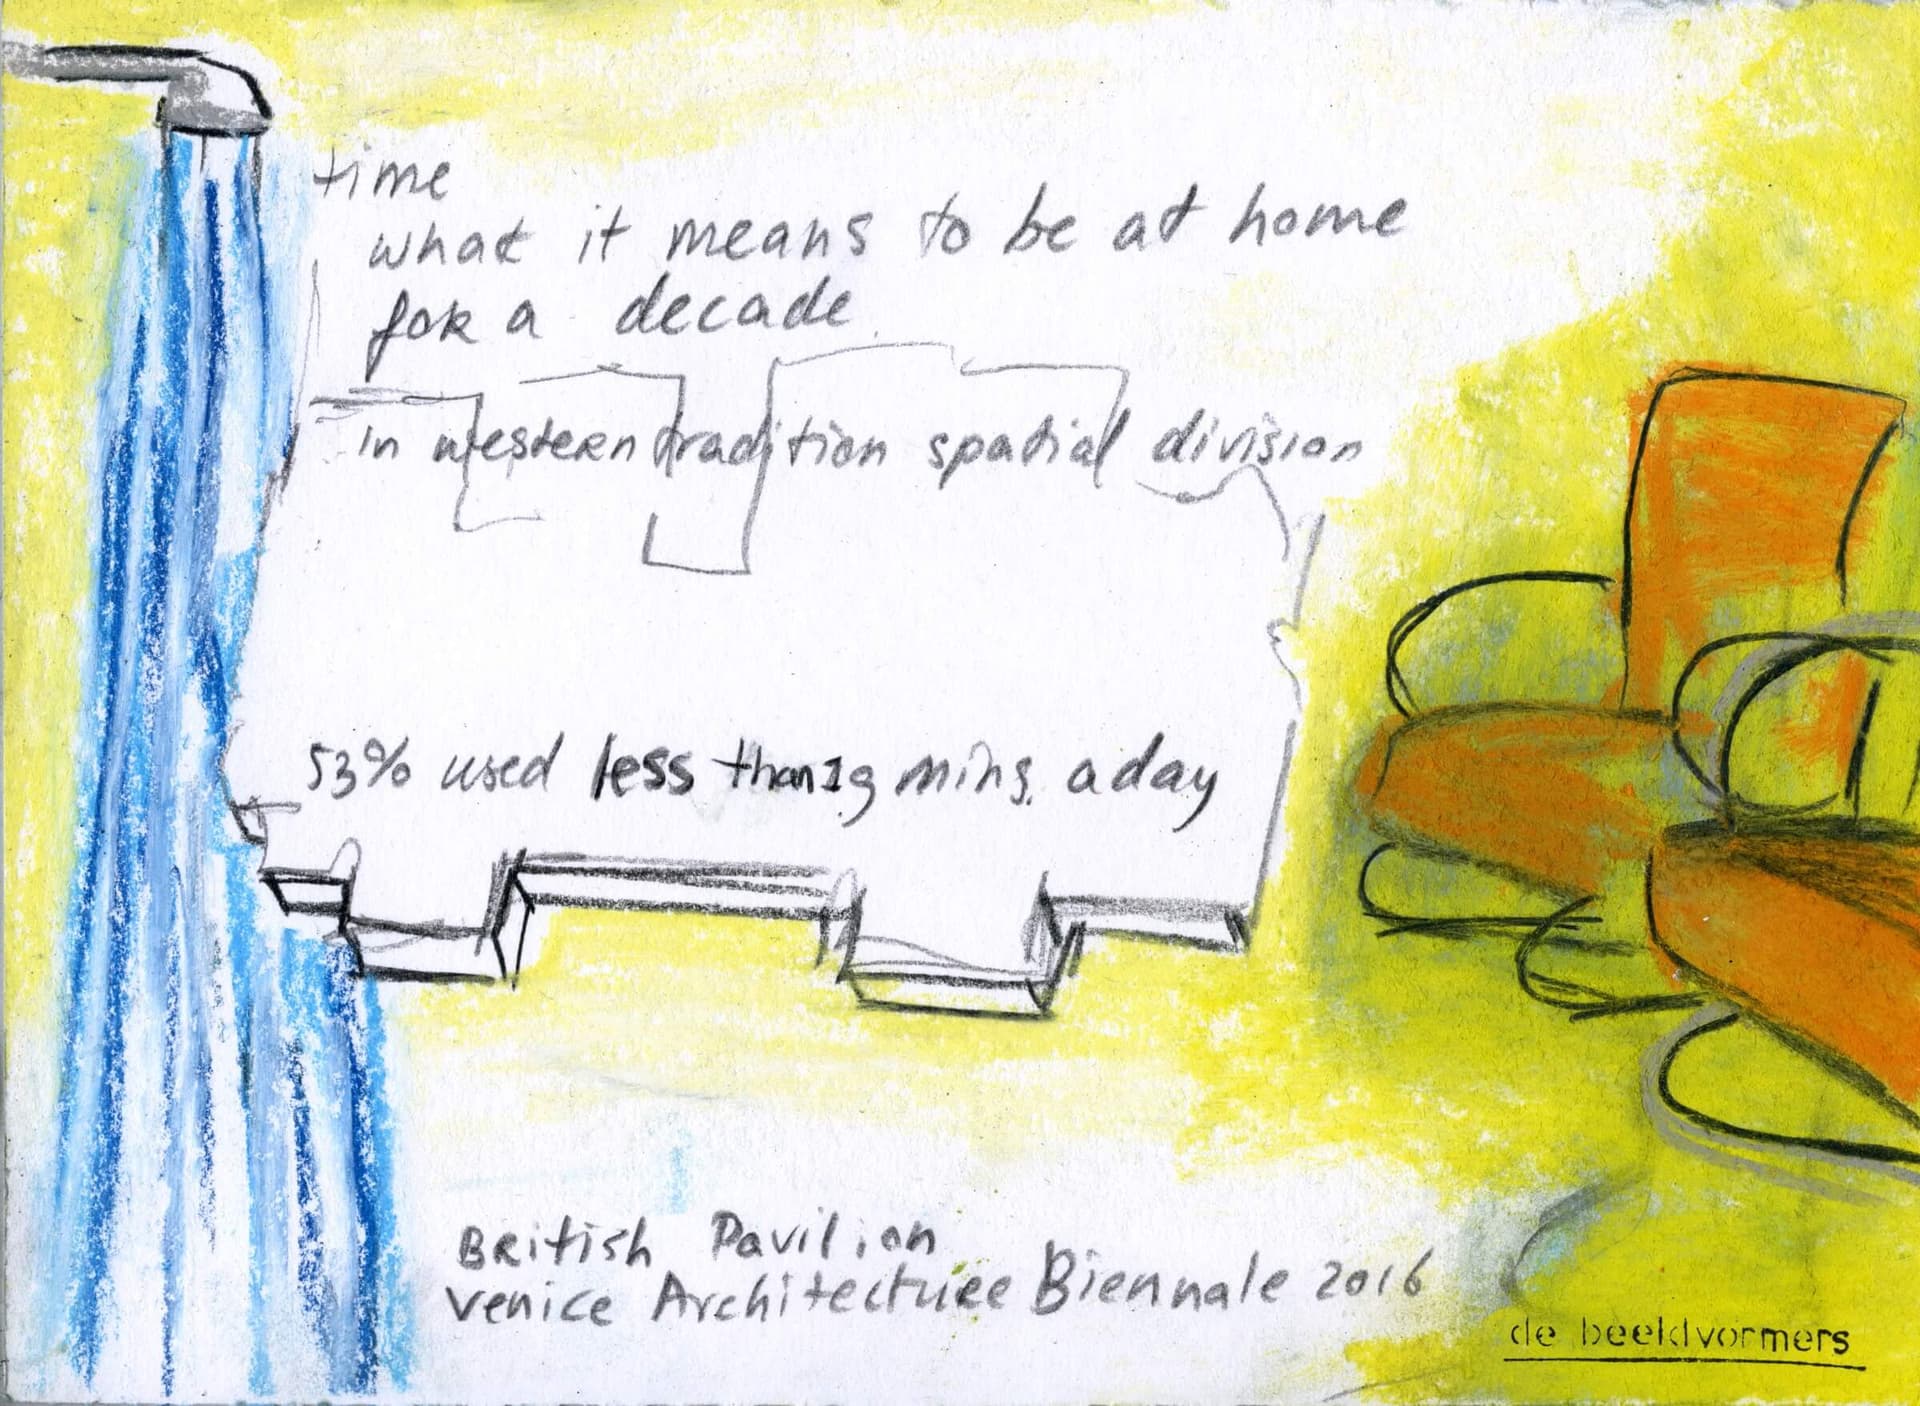 time
what it means to be at home
for a decade
in western tradition spatial division
53% used less than 19 mins. a day
British Pavilion
Venice Architecture Biennale 2016
de beeldvormers